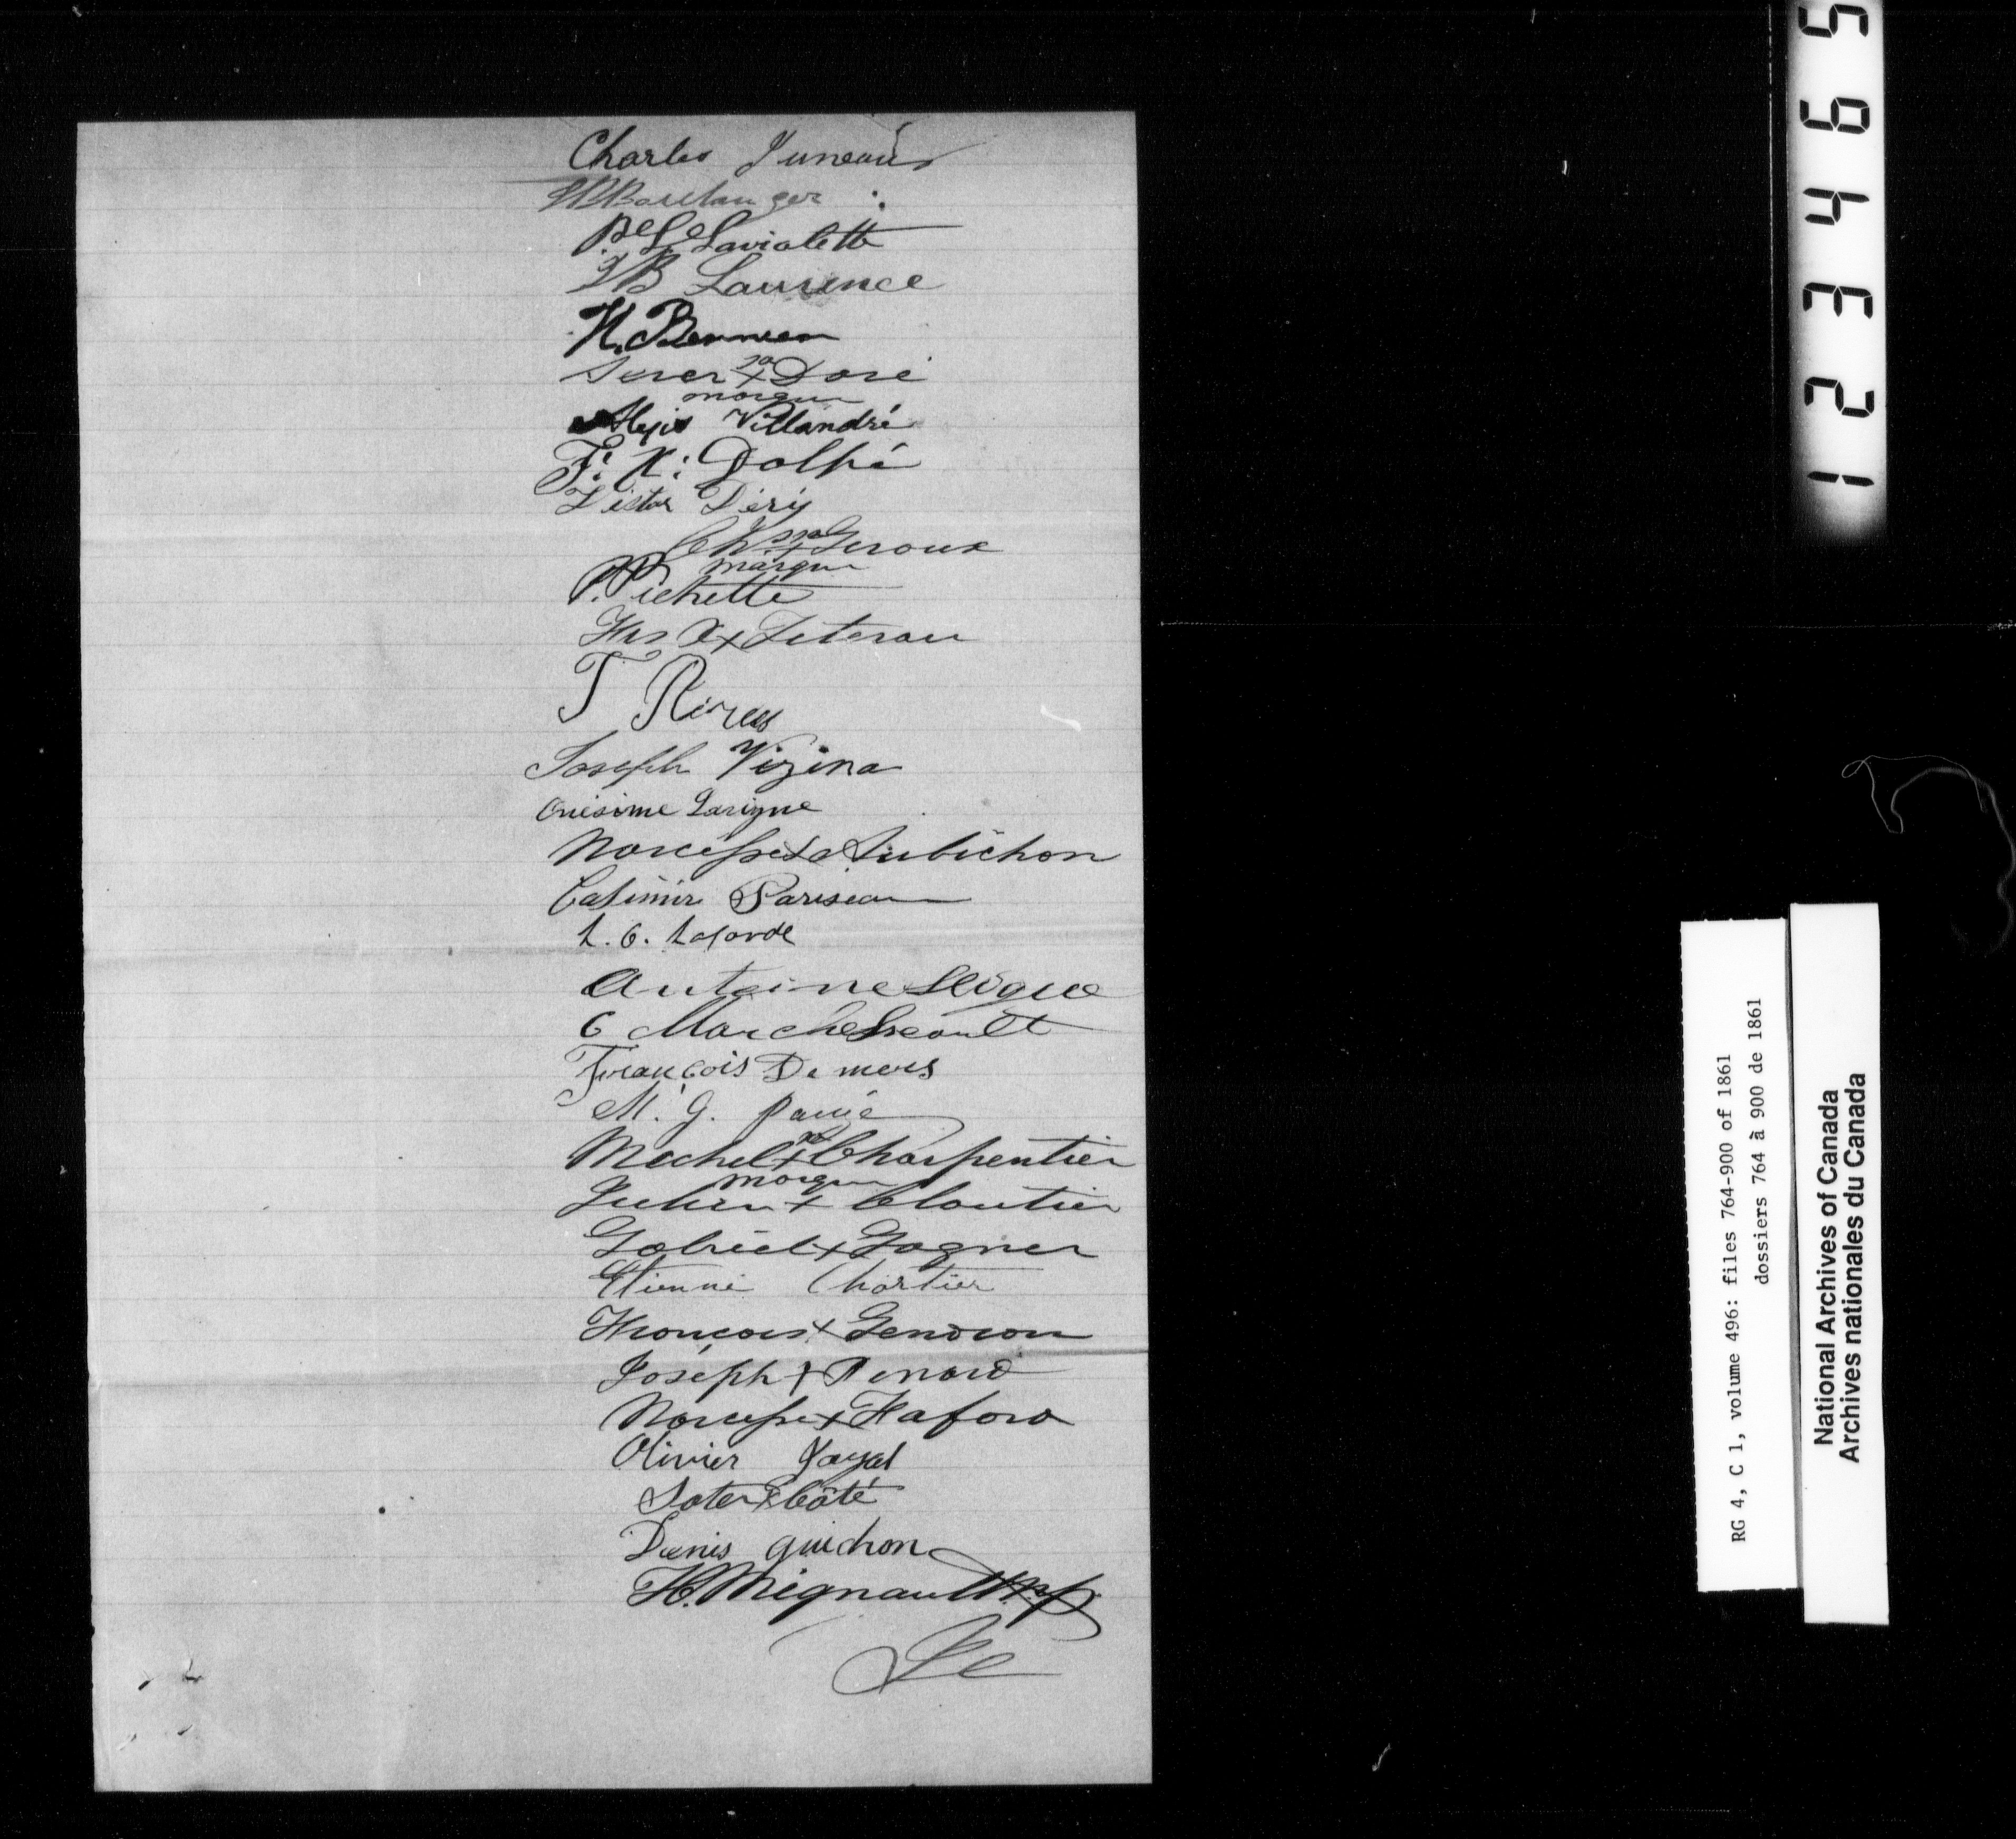 Charles Juneau
Boulanger
Laviolette
JB Laurence
H.
sa
x Doré
marque
Alexis Villandré
F: X: Dolpé
Victor Déry
sa
Ch. x Geroux
marque
P. Pichette
Frs X x
T
Joseph Vizina
Onésime Lavigne
Narcisse x Aubichon
Casimir Pariseau
L. G.
Antoine
C Marchesseault
François Demers
M. G.
sa
Michel x Charpentier
marque
Julien x Cloutier
Gabriel x Gagner
Etienne Chartier
Francois x Gendron
Joseph x Renard
Narcisse x Haford
Olivier Joyal
Soter x Côté
Denis Guichon
H. Mignault
&c
12346 5
RG 4, C 1, volume 496: files 764-900 of 1861
dossiers 764 à 900 de 1861
National Archives of Canada
Archives nationales du Canada